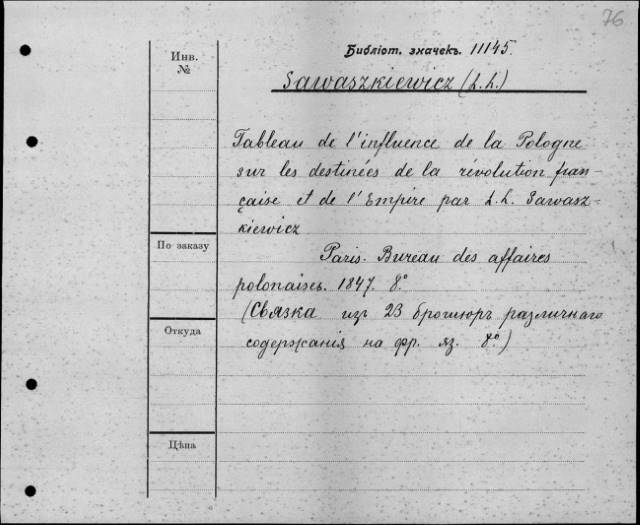 76
Библіот. значекъ. 11145.
Инв.
№
Sawaszkiewicz (L.L.)
Tableau de l'influence de la Pologne
sur les destinées de la révolution fran-
çaise et de l'Empire par L.L. Sawasz-
kiewicz
По заказу
Paris. Bureau des affaires
polonaises. 1847. 8°
(Связка изъ 23 брошюръ различнаго
Откуда
содержанія на фр. яз. 8°)
Цѣна